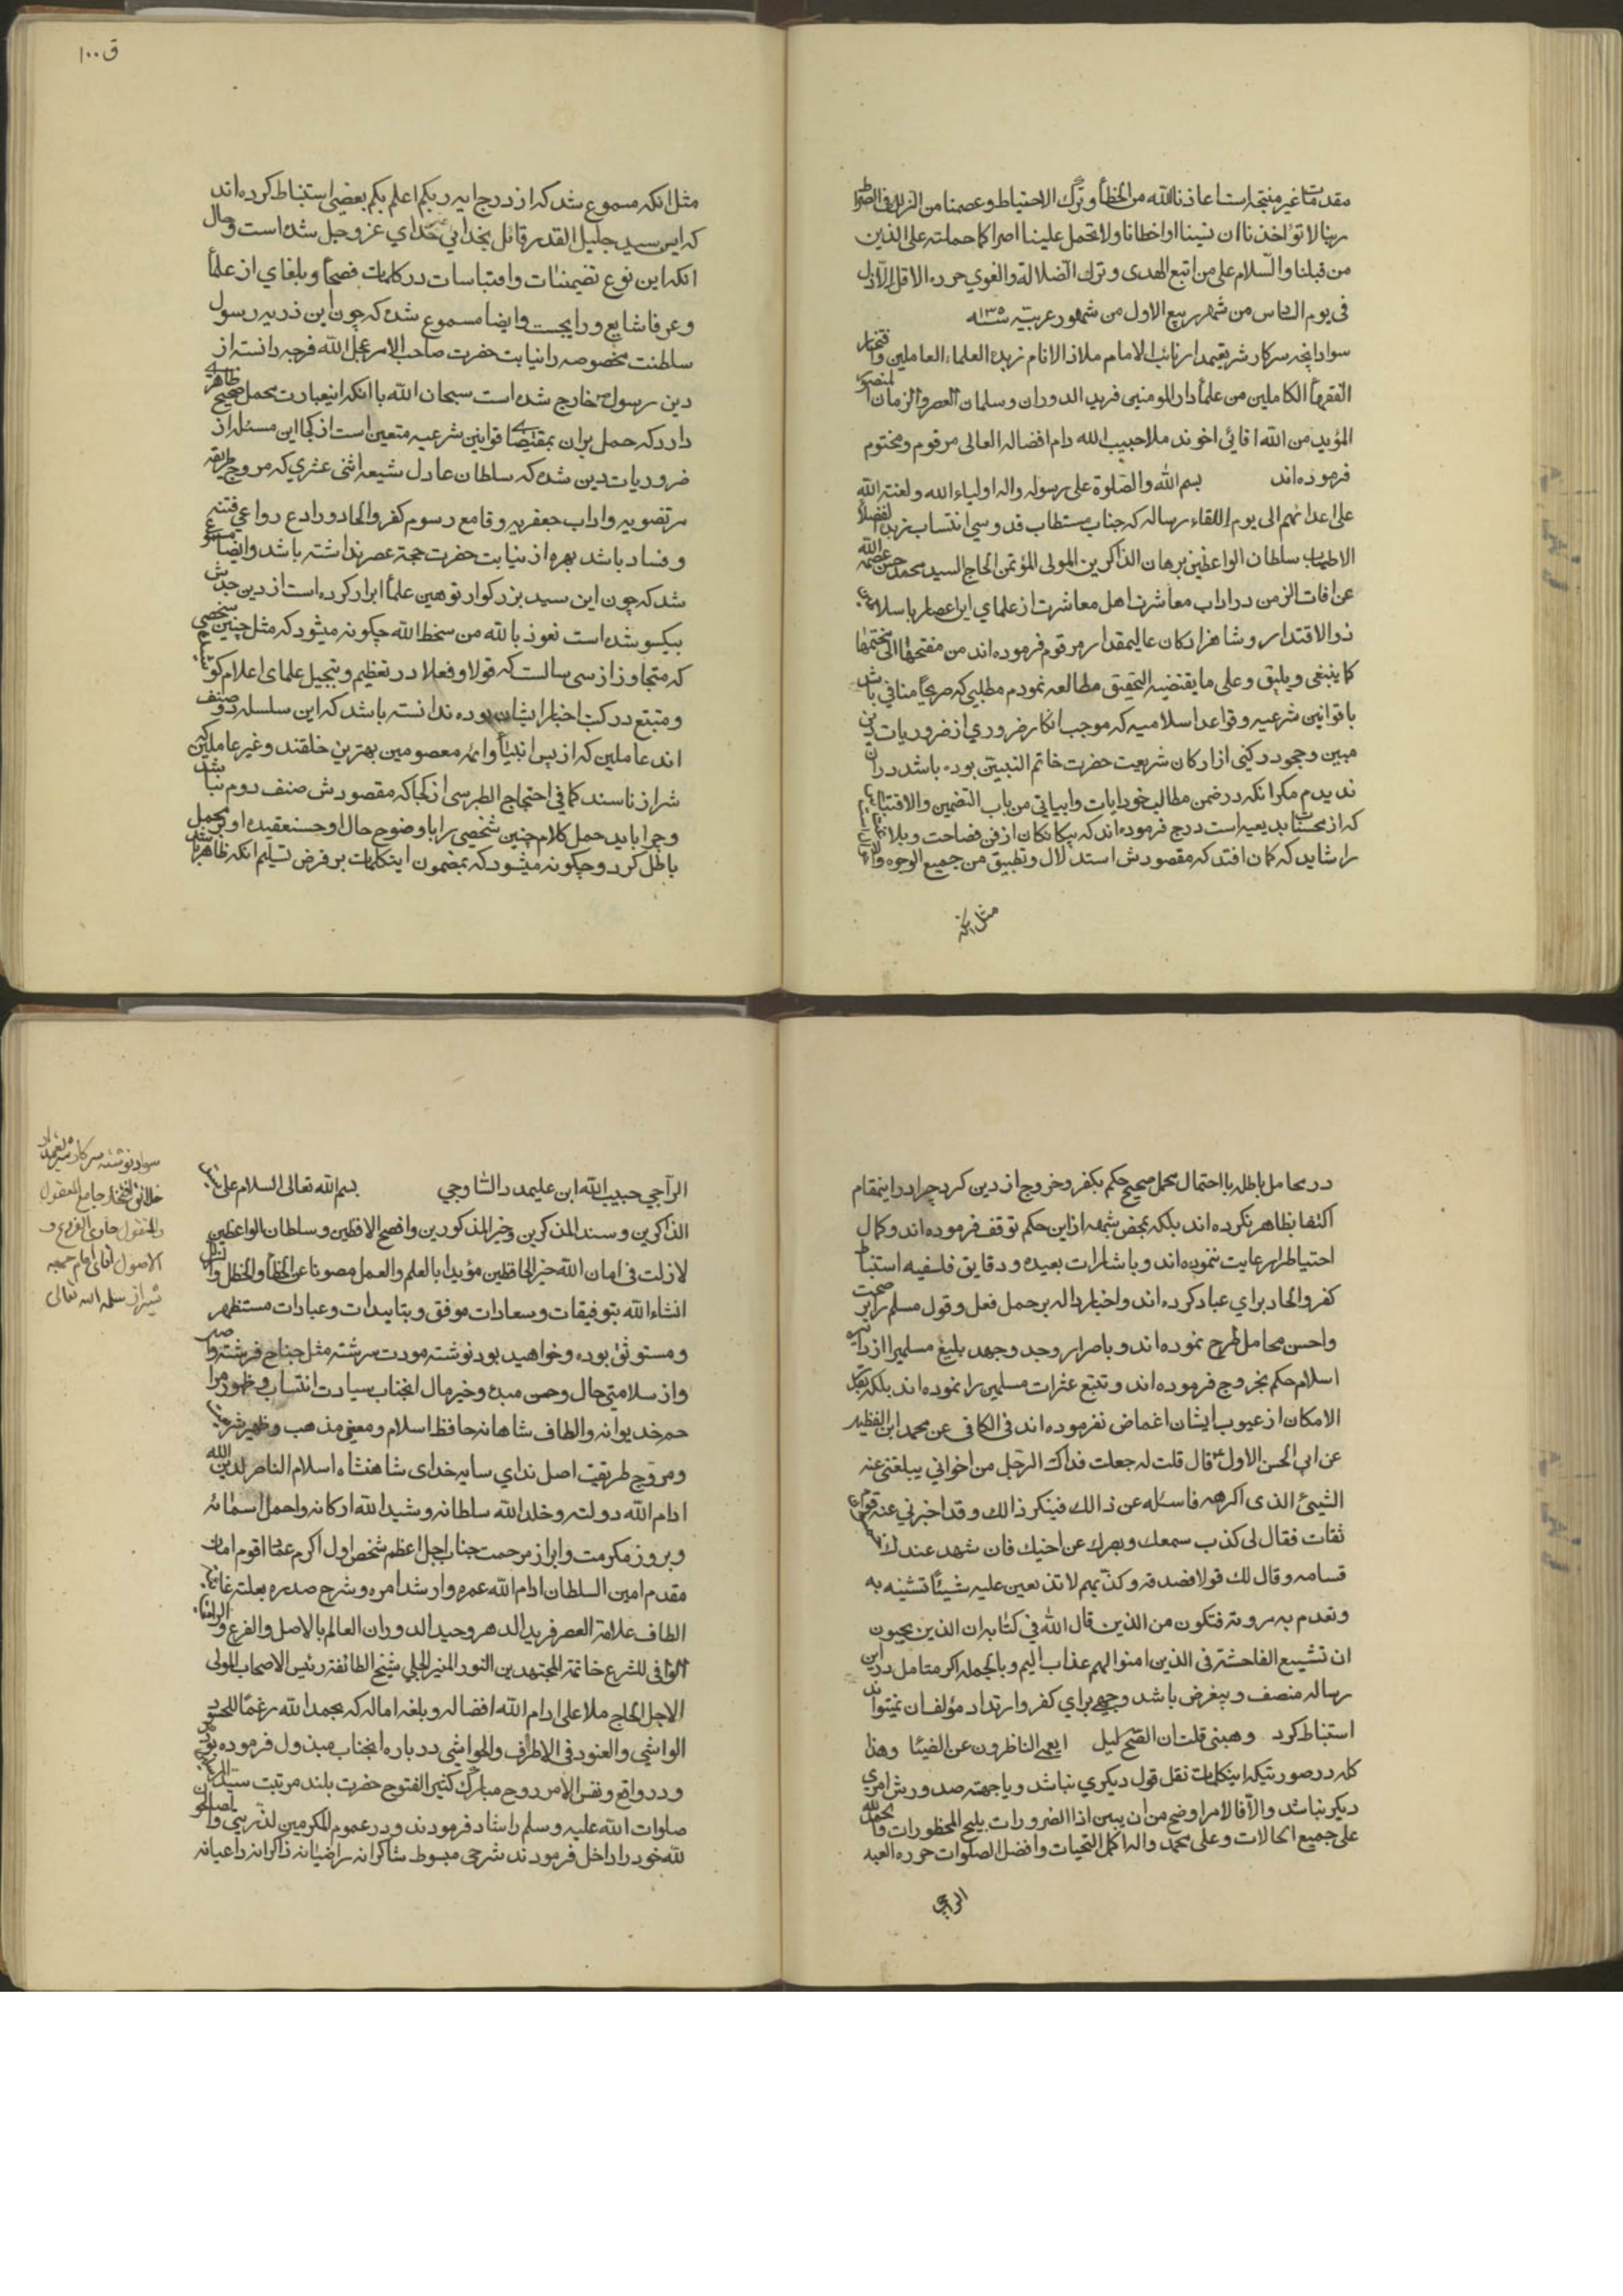 مقدمات غیر منتجه است اعاذنا الله من الخطأ و ترک الاحتیاط و عصمنا من الزلل فی الصراط
ربنا لا تؤاخذنا ان نسینا او اخطانا ولا تحمل علینا اصرا کما حملته علی الذین
من قبلنا والسلام علی من اتبع الهدی و ترک الضلالة والغوی حرره الاقل الاذل
فی یوم الخامس من شهر ربیع الاول من شهور عربیه سنه
سواد آنچه سرکار شریعتمدار نائب الامام ملاذ الانام زبدة العلماء العاملین و افتخار
الفقهأ الکاملین من علمأ دار المومنین فرید الدوران و سلمان العصر والزمان المنصور
المؤید من الله اقائی اخوند ملا حبیب الله دام افضاله العالی مرقوم و مختوم
فرموده اند بسم الله والصلوة علی رسوله واله اولیاء الله ولعنة الله
علی اعدائهم الی یوم اللقاء رساله که جناب مستطاب قدوسی انتساب زبدة الفضلأ
الاطیاب سلطان الواعظین برهان الذاکرین المولی المؤتمن الحاج السید محمد حسن عصمه الله
عن افات الزمن در اداب معاشرت اهل معاشرت از علمای این اعصار با سلاطین
ذوالاقتدار و شاهزادکان عالیمقدار مرقوم فرموده اند من مفتحها الی مختمها
کما ینبغی و یلیق و علی ما یقتضیه التحقیق مطالعه نمودم مطلبی که صریحأ منافی باشد
با قوانین شرعیه و قواعد اسلامیه که موجب انکار ضروری از ضروریات دین
مبین و جحود رکنی از ارکان شریعت حضرت خاتم النبیین بوده باشد در ان
ندیدم مکر انکه در ضمن مطالب خود ایات و ابیاتی من باب التضمین والاقتباس
که از محسنات بدیعیه است درج فرموده اند که بیکانکان از فن فصاحت و بلاغت
را شاید که کمان افتد که مقصودش استدلال و تطبیق من جمیع الوجوه
مثل انکه
ق ۱۰۰
مثل انکه مسموع شد که از درج ایه ربکم اعلم بکم بعضی استنباط کرده اند
که این سید جلیل القدر قائل بخدایی خدای عز و جل شده است و حال
انکه این نوع تضمینات و اقتباسات در کلمات فصحأ و بلغای از علمأ
و عرفا شایع و رایجست و ایضا مسموع شده که چون این ذریه رسول
سلطنت مخصوصه را نیابت حضرت صاحب الامر عجل الله فرجه دانسته از
دین رسول خارج شده است سبحان الله با انکه اینعبارت محمل صحیح ظاهری
دارد که حمل بران بمقتضای قوانین شرعیه متعین است از کجا این مسئله از
ضروریات دین شده که سلطان عادل شیعه اثنی عشری که مروج طریقه
مرتضویه و اداب جعفریه و قامع رسوم کفر و الحاد و رادع دواعی فتنه
و فساد باشد بهره از نیابت حضرت حجة عصر نداشته باشد و ایضا مسموع
شد که چون این سید بزرکوار توهین علمأ ابرار کرده است از دین جدش
بیکسو شده است نعوذ بالله من سخط الله چکونه میشود که مثل چنین شخصی
که متجاوز از سی سالست که قولا و فعلا در تعظیم و تبجیل علمای اعلام
و متبتع در کتب اخبار ایشان بوده ندانسته باشد که این سلسله دو صنف
اند عاملین که از پس انبیأ و ائمه معصومین بهترین خلقند و غیر عاملین که
شرار ناسند کما فی احتجاج الطبرسی از کجا که مقصودش صنف دوم نباشد
و چرا باید حمل کلام چنین شخصی را با وضوح حال او حسن عقیده او بر محمل
باطل کرد و چکونه میشود که بمضمون اینکلمات بر فرض تسلیم انکه ظاهر باشد
در محامل باطله با احتمال محمل صحیح حکم بکفر و خروج از دین کرد چرا در اینمقام
اکتفا بظاهر نکرده اند بلکه بمحض شبهه از این حکم توقف فرموده اند و کمال
احتیاط را رعایت ننموده اند و باشارات بعیده و دقایق فلسفیه استنباط
کفر و الحاد برای عباد کرده اند و اخبار داله بر حمل فعل و قول مسلم را بر صحت
و احسن محامل طرح نموده اند و باصرار و جد و جهد بلیغ مسلمی را از دایره
اسلام حکم بخروج فرموده اند و تتبع عثرات مسلمین را نموده اند بلکه بقدر
الامکان از عیوب ایشان اغماض نفرموده اند فی الکافی عن محمد ابن الفضیل
عن ابی الحسن الاول ع قال قلت له جعلت فداک الرجل من اخوانی یبلغنی عنه
الشیئ الذی اکرهه فاسئله عن ذالک فینکر ذالک و قد اخبرنی عنه قوم
ثقات فقال لی کذب سمعک و بصرک عن اخیک فان شهد عندک
قسامه و قال لک قولا فصدقه و کذبهم لا تذیعین علیه شیئأ تشینه به
و تهدم به مروته فتکون من الذین قال الله فی کتابه ان الذین یحبون
ان تشیع الفاحشة فی الذین امنوا لهم عذاب الیم و بالجمله اکر متامل در این
رساله منصف و بیغرض باشد وجهی برای کفر و ارتداد مؤلف ان نمیتواند
استنباط کرد وهبنی قلت ان الصبح لیل ایعمی الناظرون عن الضیئا وهذا
کله در صورتیکه اینکلمات نقل قول دیکری نباشد و یا جهة صدورش امری
دیکر نباشد والا فالامر اوضح من ان یبین اذا الضرورات یبیح المحظورات والحمد لله
علی جمیع الحالات و علی محمد واله اکمل التحیات و افضل الصلوات حرره العبد
الراجی
الراجی حبیب الله ابن علیمدد الساوجی بسم الله تعالی السلام علی
الذاکرین و سند المذکرین و خیر المذکورین و افصح الافظین و سلطان الواعظین
لا زلت فی امان الله خیر الحافظین مؤیدا بالعلم والعمل مصونا عن الخطأ والخطل والزلل
انشاء الله بتوفیقات و سعادات موفق و بتاییدات و عبادات مستظهر
و مستوثق بوده و خواهید بود نوشته مودت سرشته مثل جناح فرشته واصل
و از سلامتی حال و حسن مبدء و خیر مال انجناب سیادت انتساب و ظهور مراحم
خدیوانه و الطاف شاهانه حافظ اسلام و معین مذهب و ظهیر شریعت
و مروج طریقت اصل ندای سایه خدای شاهنشاه اسلام الناصر لدین الله
ادام الله دولته و خلد الله سلطانه و شید الله ارکانه و احمل اسمائه
و بروز مکرمت و ابراز مرحمت جناب اجل اعظم شخص اول اکرم عمأ اقوم امان
مقدم امین السلطان ادام الله عمره و ارشد امره و شرح صدره بعلت
الطاف علامة العصر فرید الدهر وحید الدوران العالم بالاصل والفرع و
الوافی للشرع خاتمة المجتهدین النور المنیر الجلی شیخ الطائفه رئیس الاصحاب المولی
الاجل الحاج ملا علی ادام الله افضاله و بلغه اماله که بحمد الله رغما للحسود
الواشی والعنود فی الاطراف والحواشی در باره انجناب مبذول فرموده بودند
و در واقع و نفس الامر روح مبارک کثیر الفتوح حضرت بلند مرتبت سید
صلوات الله علیه و سلم را شاد فرمودند و در عموم المکرمین لذریتی و الصالحون
لله خود را داخل فرمودند شرحی مبسوط شاکرانه راضیانه ذاکرانه داعیانه
سواد نوشته سرکار شریعتمدار
خلائق افتخار جامع المعقول
والمنقول حاوی الفروع و
الاصول اقای امام جمعه
شیراز سلمه الله تعالی